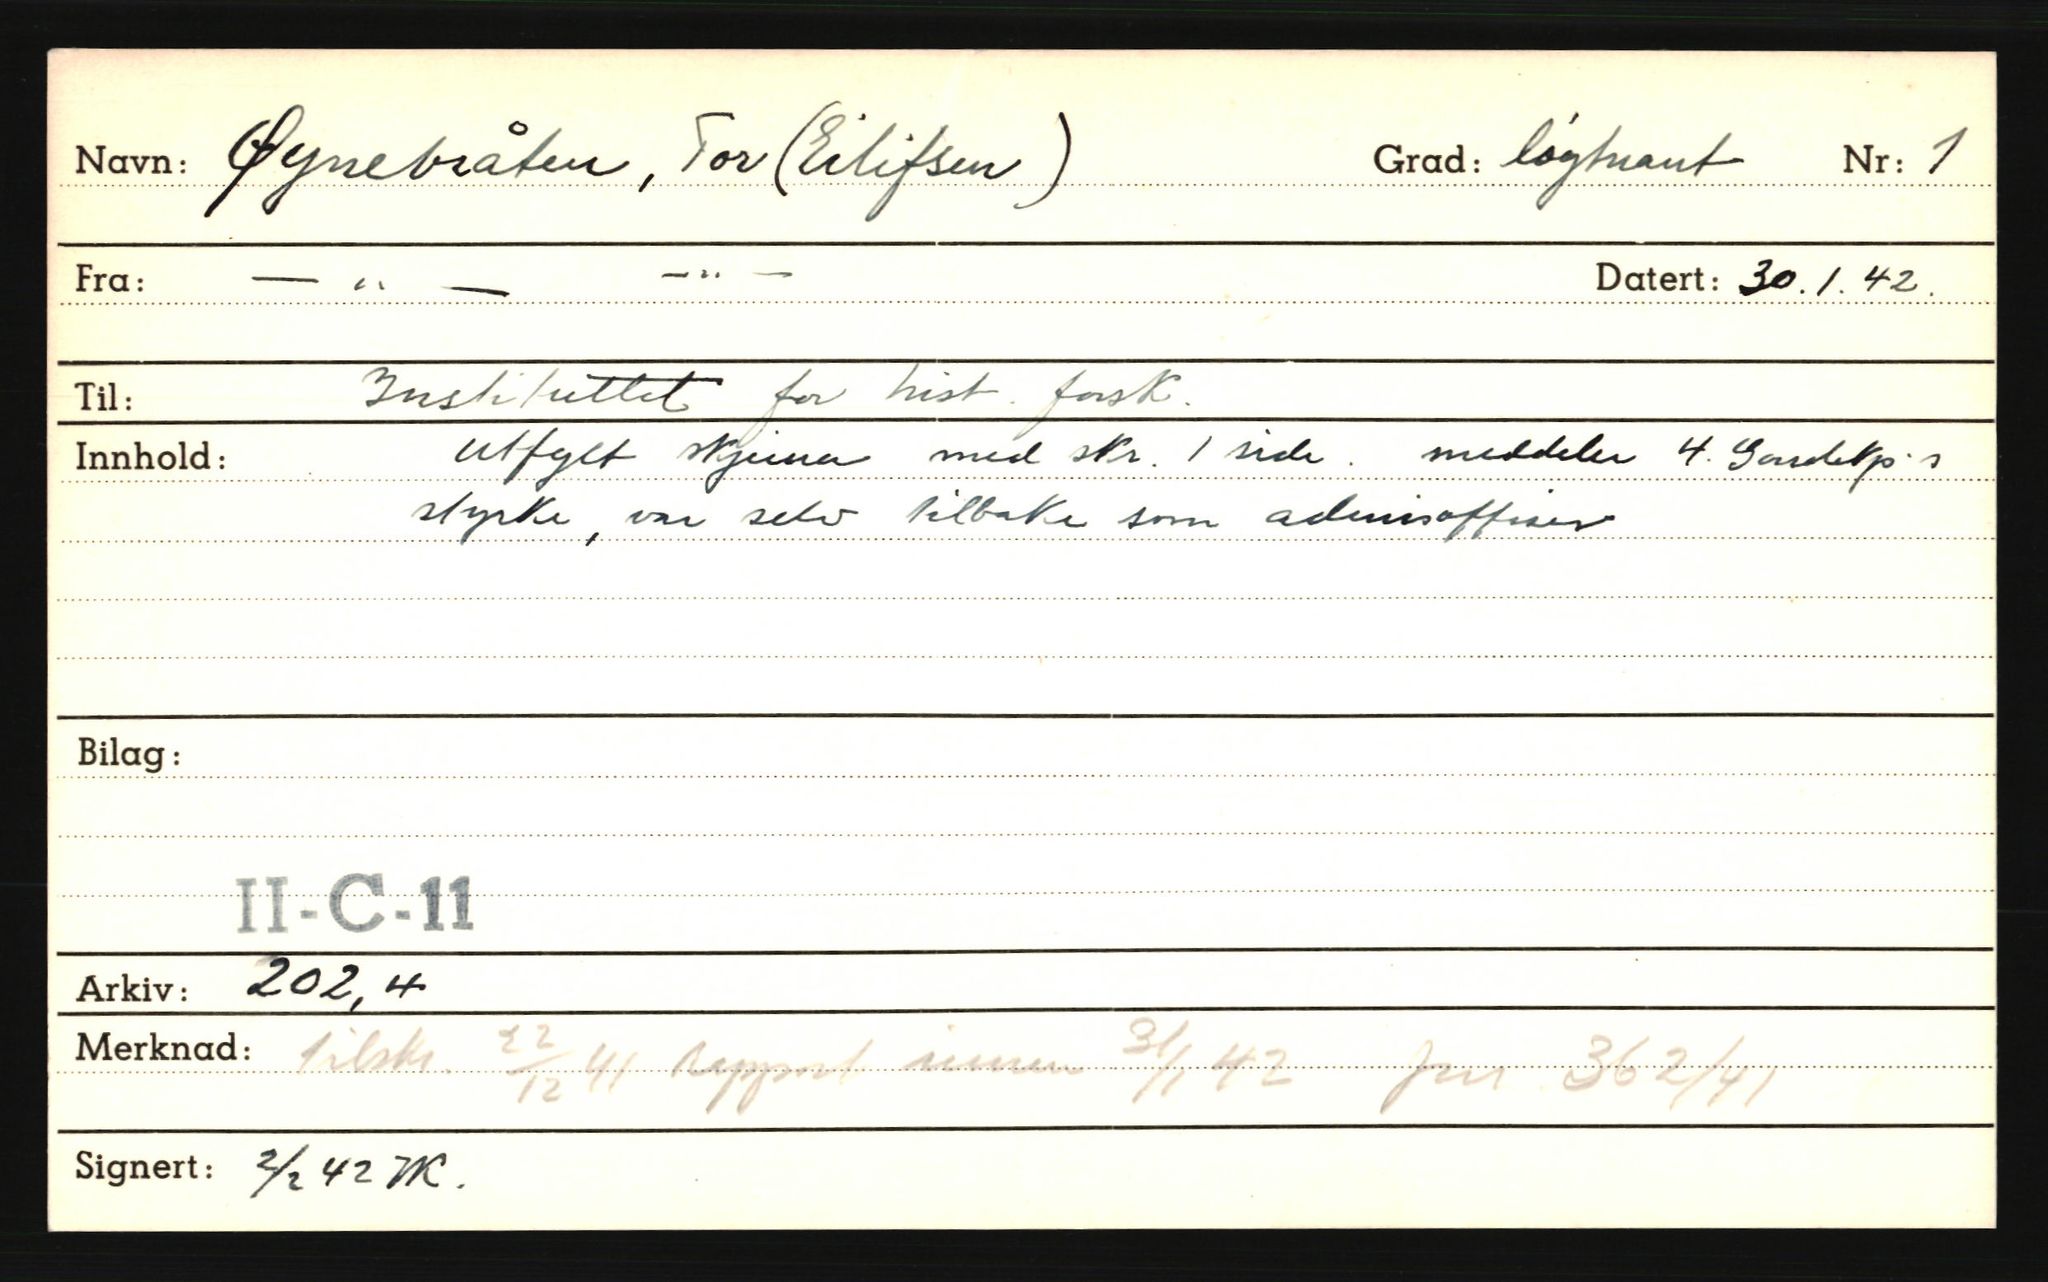 Navn: Øynebråten, Tor (Eilifsen) Grad: løytnant Nr: 1
Fra: — " — — " — Datert: 30.1.42.
Til: Instituttet for hist. forsk.
Innhold: utfylt skjema med skr. 1 side. meddeler 4. Gardekp.s
styrke, var selv tilbake som admisoffiser
Bilag:
II-C-11
Arkiv: 202,4
Merknad: tilskr. 22/12 41 Rapport innen 31/1 42 Jnr. 362/41
Signert: 2/2 42 HK.